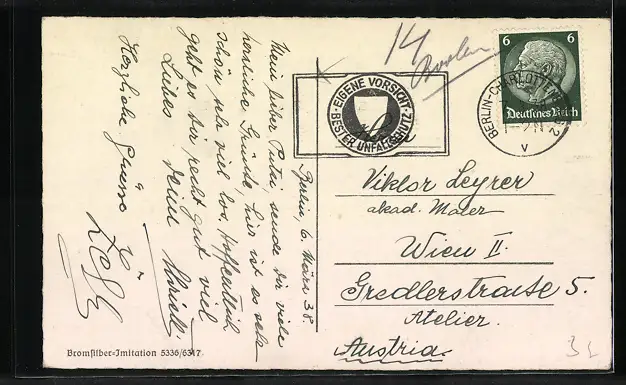 14
6 6
Deutsches Reich
BERLIN-CHARLOTTENBURG 2
V
EIGENE VORSICHT
BESTER UNFALLSCHUTZ
Berlin, 6. März 38.
Mein lieber Putzi sende Dir viele
herzliche Grüsse, hier ist es sehr
schön sehr viel los, Hoffentlich
geht es Dir recht gut viel
Liebes Deine
Herzliche Grüsse
Viktor Leyrer
akad. Maler
Wien II.
Gredlerstrasse 5.
Atelier.
Austria.
Bromsilber-Imitation 5336/6317